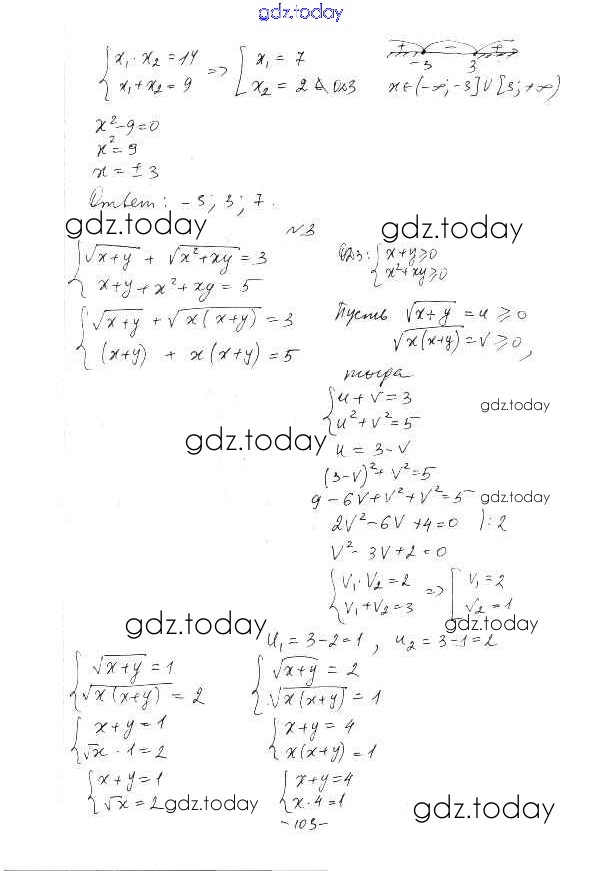 gdz.today
{ x₁ · x₂ = 14 => [ x₁ = 7
{ x₁ + x₂ = 9 [ x₂ = 2 ∉ ОДЗ
+ − +
-3 3
x ∈ (-∞; -3] ∪ [3; +∞)
x² - 9 = 0
x² = 9
x = ± 3
Ответ: -3; 3; 7.
gdz.today gdz.today
№3
{ √(x+y) + √(x²+xy) = 3
{ x+y+x²+xy = 5
ОДЗ: { x+y ≥ 0
{ x²+xy ≥ 0
{ √(x+y) + √(x(x+y)) = 3
{ (x+y) + x(x+y) = 5
Пусть √(x+y) = u ≥ 0
√(x(x+y)) = v ≥ 0,
тогда
{ u + v = 3
{ u² + v² = 5
gdz.today
gdz.today
u = 3 - v
(3-v)² + v² = 5
9 - 6v + v² + v² = 5
gdz.today
2v² - 6v + 4 = 0 | : 2
v² - 3v + 2 = 0
{ v₁ · v₂ = 2 => [ v₁ = 2
{ v₁ + v₂ = 3 [ v₂ = 1
gdz.today gdz.today
u₁ = 3-2 = 1, u₂ = 3-1 = 2
{ √(x+y) = 1
{ √(x(x+y)) = 2
{ x+y = 1
{ √x · 1 = 2
{ x+y = 1
{ √x = 2
{ √(x+y) = 2
{ √(x(x+y)) = 1
{ x+y = 4
{ x(x+y) = 1
{ x+y = 4
{ x · 4 = 1
gdz.today gdz.today
-103-